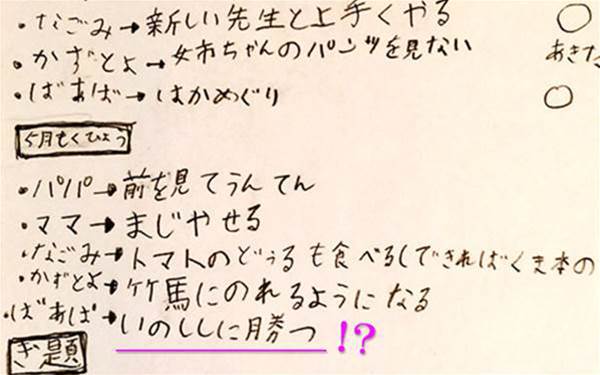 ・なごみ→新しい先生と上手くやる ○
・かずとよ→女市ちゃんのパンツを見ない あきた
・ばあば→はかめぐり ○
5月もくひょう
・パパ→前を見てうんてん
・ママ→まじやせる
・なごみ→トマトのどぅるも食べるしできればくま本の
・かずとよ→竹馬にのれるようになる
・ばあば→いのししに勝つ !?
ぎ題